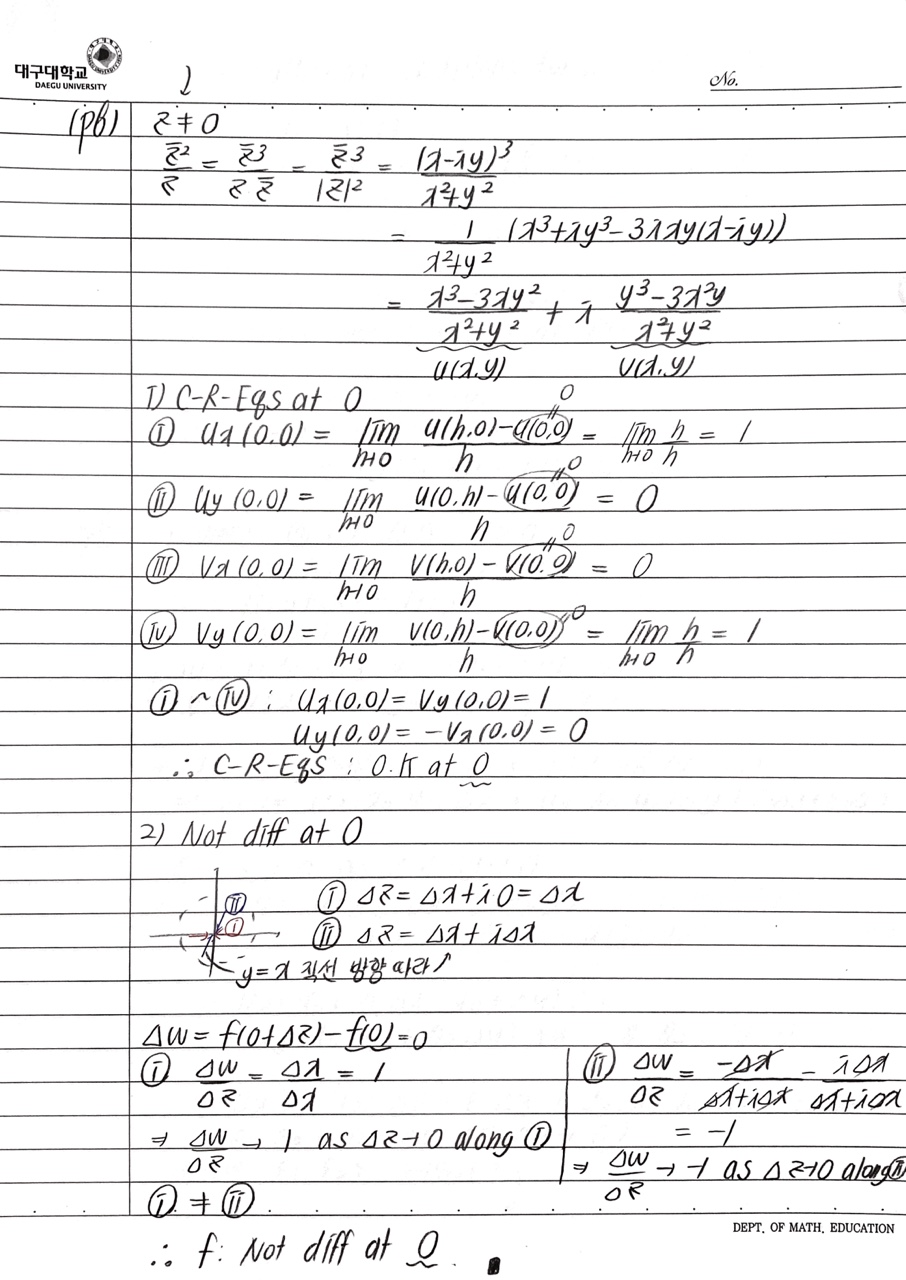 대구대학교
DAEGU UNIVERSITY
No.
(p6) z ≠ 0
z̄²/z = z̄³/(z z̄) = z̄³/|z|² = (x-iy)³/(x²+y²)
= 1/(x²+y²) (x³+iy³-3ixy(x-iy))
= (x³-3xy²)/(x²+y²) + i (y³-3x²y)/(x²+y²)
u(x,y) v(x,y)
1) C-R-Eqs at 0
ⓘ ux(0,0) = lim h→0 (u(h,0)-u(0,0))/h = lim h→0 h/h = 1
ⅱ uy(0,0) = lim h→0 (u(0,h)-u(0,0))/h = 0
ⅲ vx(0,0) = lim h→0 (v(h,0)-v(0,0))/h = 0
ⅳ vy(0,0) = lim h→0 (v(0,h)-v(0,0))/h = lim h→0 h/h = 1
ⅰ ~ ⅳ : ux(0,0) = vy(0,0) = 1
uy(0,0) = -vx(0,0) = 0
∴ C-R-Eqs : O.K at 0
2) Not diff at 0
ⅰ Δz = Δx+i0 = Δx
ⅱ Δz = Δx+iΔx
y=x 직선 방향 따라
Δw = f(0+Δz)-f(0)=0
ⅰ Δw/Δz = Δx/Δx = 1
⇒ Δw/Δz → 1 as Δz→0 along ⅰ
ⅱ Δw/Δz = -Δx/(Δx+iΔx) - iΔx/(Δx+iΔx)
= -1
⇒ Δw/Δz → -1 as Δz→0 along ⅱ
ⅰ ≠ ⅱ
DEPT. OF MATH. EDUCATION
∴ f: Not diff at 0.